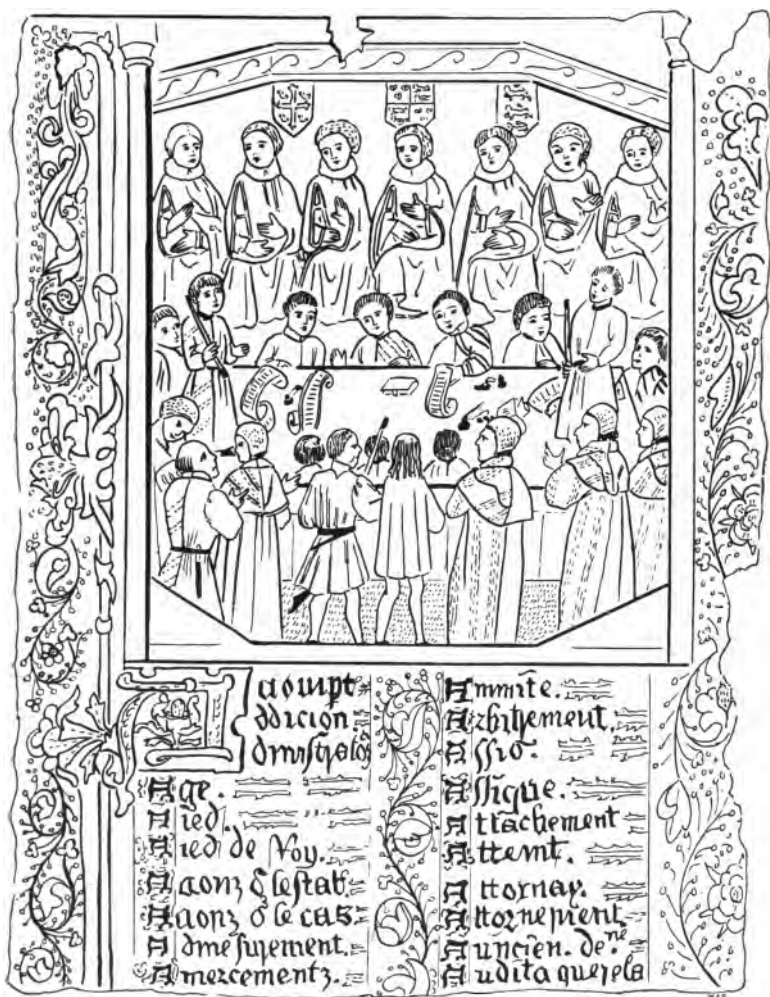 Accompt
ddicion
Age.
Aied
Aied de Roy.
Accons d le stat.
Accons d le cas.
Admesurement.
Amercementz.
Arbitrement.
Assigne.
Attachement
Atteint.
Attornay.
Attornement
Auncien. dene
Audita querela